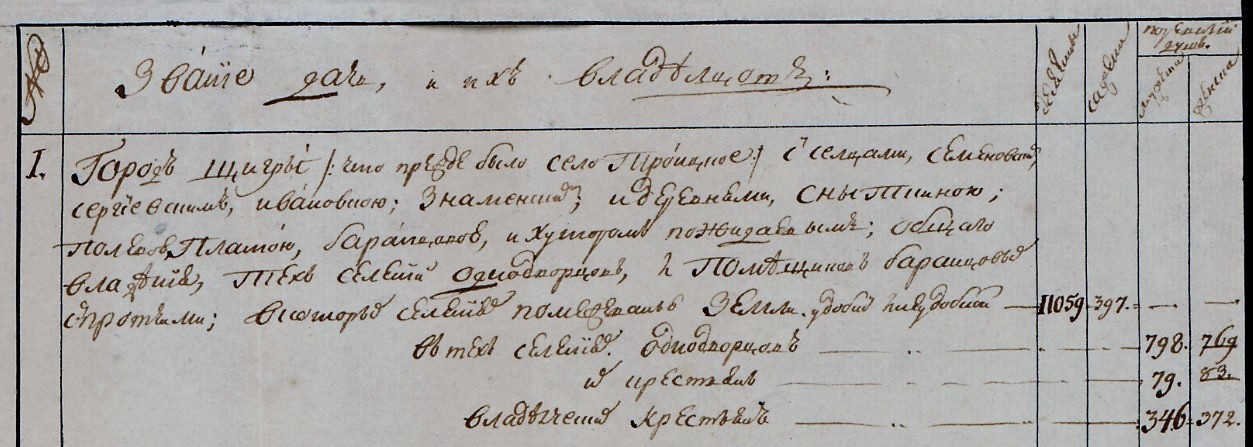 № Званïе дачь, и ихъ владѣльцотъ: десятины сажени по ревизии душъ. мужска женска
1. Городъ Щигры /: что прежде было село Троицкое :/ с селцами, семеновкою,
сергïевскимъ, ивановкою; Знаменскимъ; и деревнями, Сныткиною;
Полевою, Платою, баранцовою, и хуторомъ пожидаевымъ; общаго
владѣнïя, тѣхъ селенïи однодворцовъ, и Помѣщиковъ баранцовыхъ
с протчими; в которые селенïе помежевано земли удобной и неудобной — 11059. 397. — —
въ техъ селенïяхъ. однодворцовъ — 798. 769
и крестьянъ — 79. 83.
владѣлческихъ крестьянъ — 346. 372.